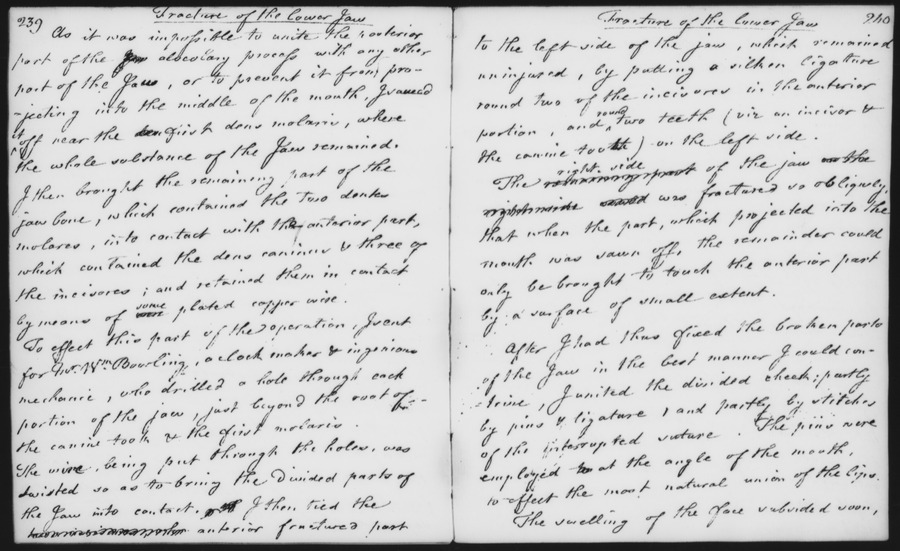 239
Fracture of the Lower Jaw
As it was impossible to unite the posterior
part of the alveolary process with any other
part of the Jaw, or to prevent it from pro-
-jecting into the middle of the mouth, I sawed
it off near the first dens molaris, where
the whole substance of the Jaw remained.
I then brought the remaining part of the
jaw bone, which contained the two dentes
molares, into contact with the anterior part,
which contained the dens caninus & three of
the incisores; and retained them in contact
by means of some plated copper wire.
To effect this part of the operation, I sent
for Mr. Wm. Bowling, a clock maker & ingenious
mechanic, who drilled a hole through each
portion of the jaw, just beyond the root of
the canine tooth & the first molaris.
The wire, being put through the holes, was
twisted so as to bring the divided parts of
the Jaw into contact. I then tied the
anterior fractured part
240
Fracture of the lower Jaw
to the left side of the jaw, which remained
uninjured, by putting a silken ligature
round two of the incisores in the anterior
portion, and round two teeth (viz an incisor &
the canine tooth) on the left side.
The right side of the jaw
was fractured so obliquely,
that when the part, which projected into the
mouth was sawn off, the remainder could
only be brought to touch the anterior part
by a surface of small extent.
After I had thus fixed the broken parts
of the Jaw in the best manner I could con-
-trive, I united the divided cheek, partly
by pins & ligature, and partly by stitches
of the interrupted suture. The pins were
employed at the angle of the mouth,
to effect the most natural union of the lips.
The swelling of the face subsided soon,